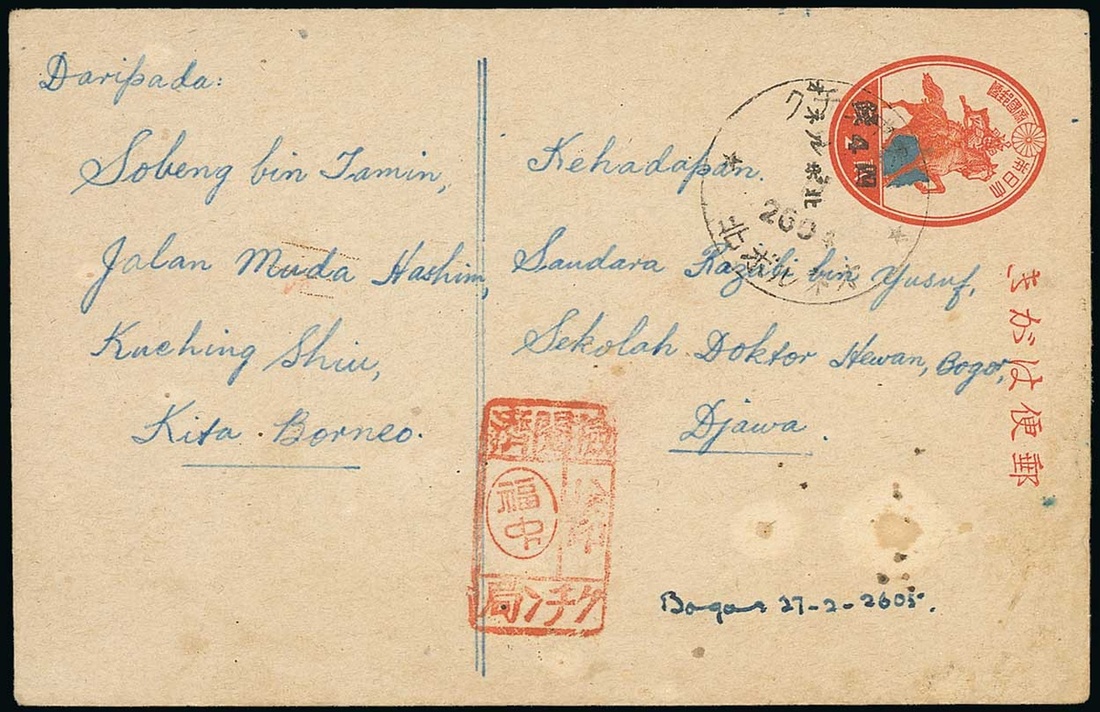 Daripada:
Sobeng bin Tamin,
Jalan Muda Hashim,
Kuching Shiu,
Kita Borneo.
Kehadapan.
Saudara Razali bin Yusuf,
Sekolah Doktor Hewan, Bogor,
Djawa.
Bogor 27-2-2605.
郵便はがき
大日本帝國郵便
4
北ボルネオ
260
検閲済
福中
クチン局